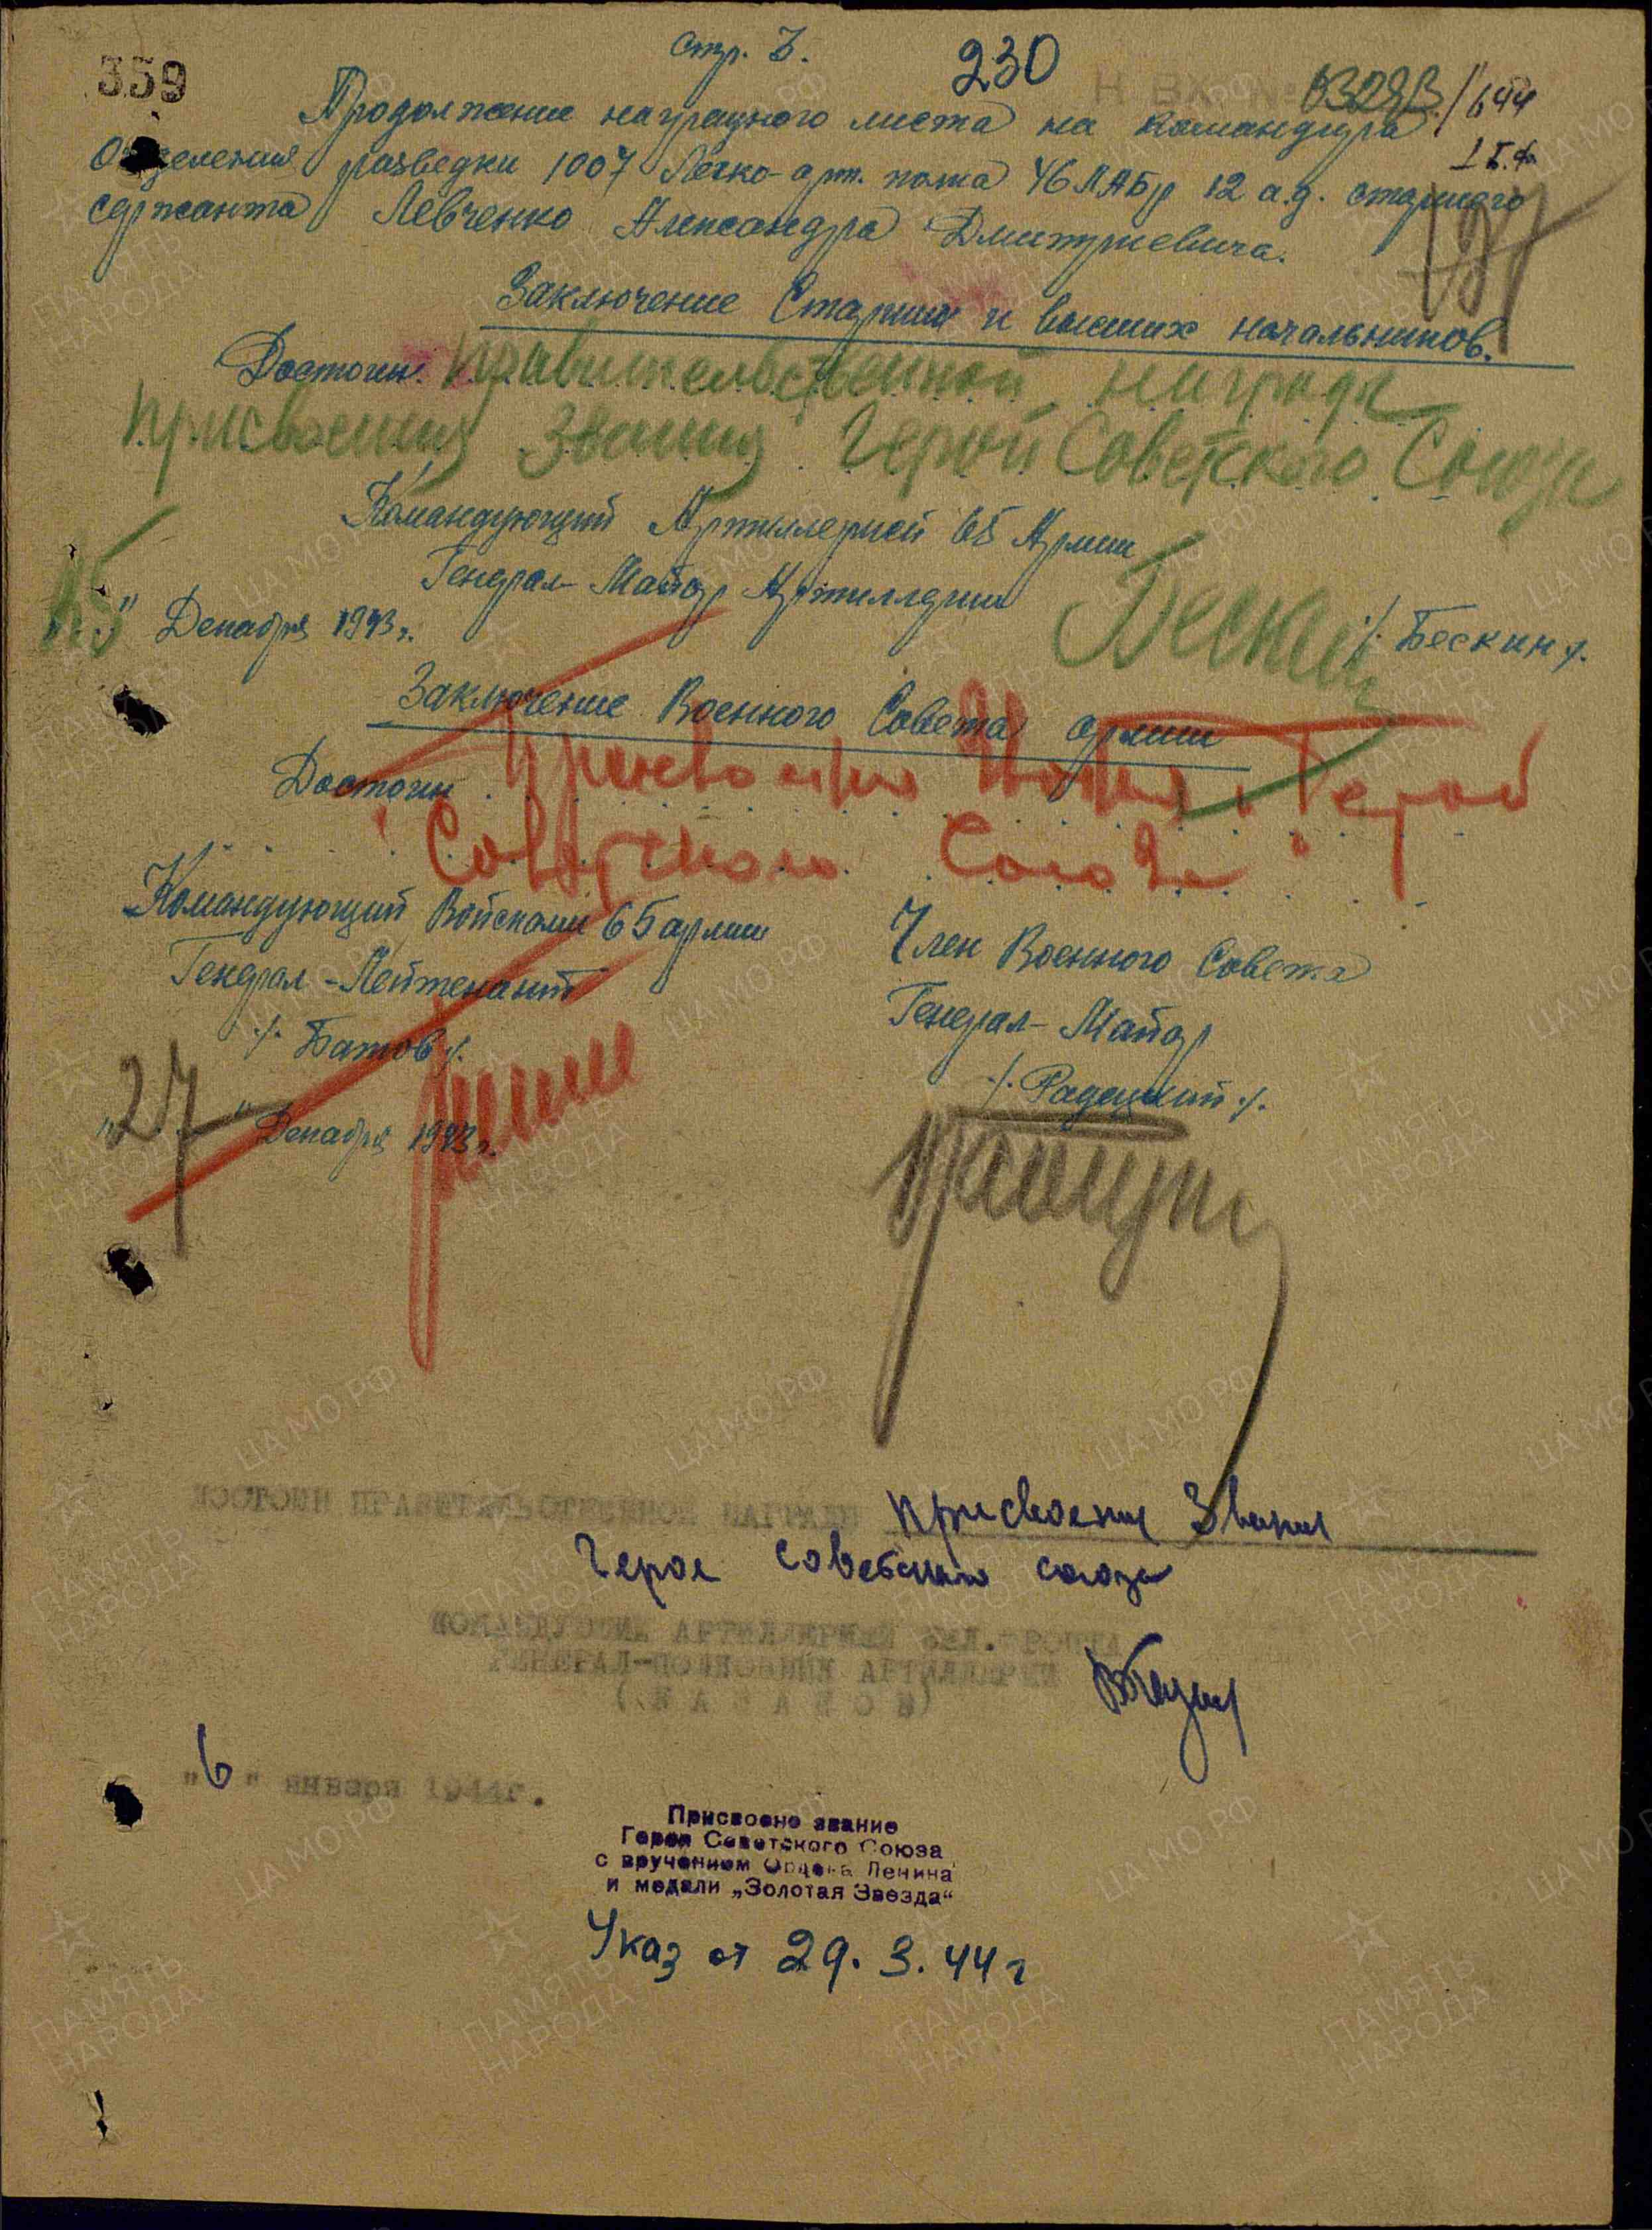 стр. 3.
359
230
Н ВХ. №
/644
Продолжение наградного листа на командира
Отделения разведки 1007 Легко-арт. полка 46 ЛАБр 12 а.д. старшего
сержанта Левченко Александра Дмитриевича.
Заключение Старших и высших начальников.
Достоин правительственной награды
присвоения Звания Герой Советского Союза
Командующий Артиллерией 65 Армии
Генерал-Майор Артиллерии
/. Бескин /.
"15" Декабря 1943 г.
Заключение Военного Совета армии
Достоин присвоения звания "Герой
Советского Союза"
Командующий Войсками 65 армии
Генерал-Лейтенант
/. Батов /.
"27" Декабря 1943 г.
Член Военного Совета
Генерал-Майор
/. Радецкий /.
ДОСТОИН ПРАВИТЕЛЬСТВЕННОЙ НАГРАДЫ присвоения Звания
Героя Советского Союза
КОМАНДУЮЩИЙ АРТИЛЛЕРИЕЙ БЕЛ. ФРОНТА
ГЕНЕРАЛ-ПОЛКОВНИК АРТИЛЛЕРИИ
"6" января 1944г.
Присвоено звание
Героя Советского Союза
с вручением Ордена Ленина
и медали „Золотая Звезда“
Указ от 29. 3. 44 г
ПАМЯТЬ НАРОДА
ЦАМО РФ